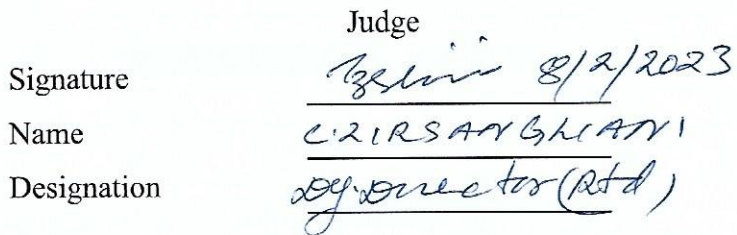 Judge
Signature 8/2/2023
Name C.ZIRSANGLIANI
Designation Dy.Director (Rtd)